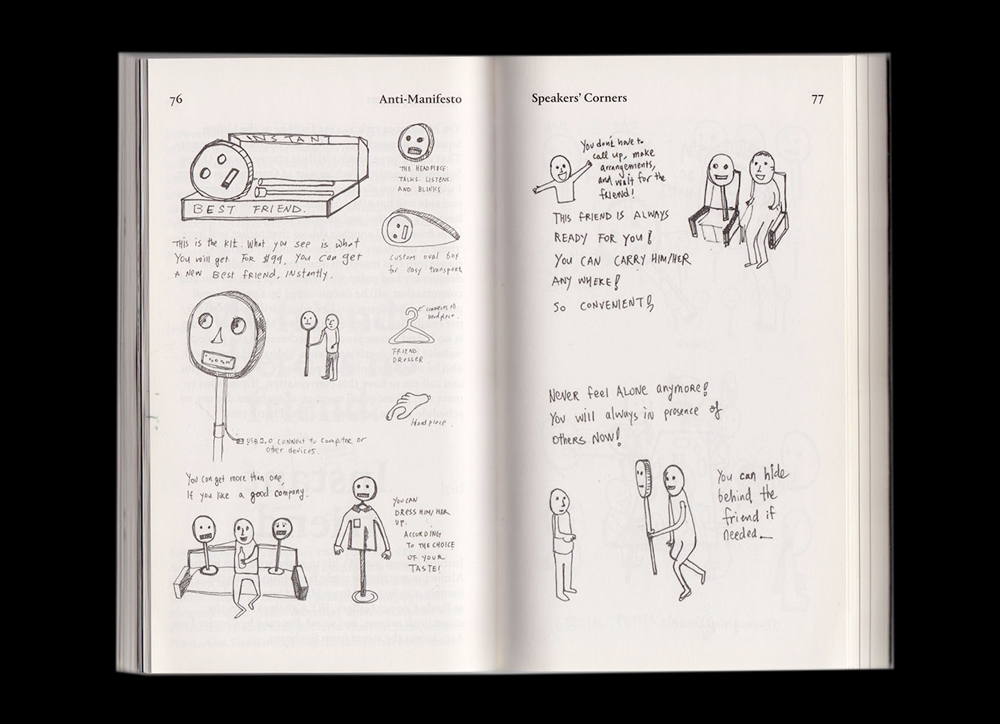 76
Anti-Manifesto
INSTANT
BEST FRIEND.
THE HEADPIECE
TALKS. LISTENS
AND BLINKS.
This is the kit. What you see is what
You will get. For $99, You can get
a new Best friend, instantly.
custom oval bag
for easy transport
connects to
headpiece.
FRIEND
DRESSER
Handpiece.
USB 2.0 connect to computer or
other devices.
You can get more than one,
If you like a good company.
YOU CAN
DRESS HIM/HER
UP.
ACCORDING
TO THE CHOICE
OF YOUR
TASTE!
Speakers' Corners
77
You don't have to
call up, make
arrangements,
and wait for the
friend!
THIS FRIEND IS ALWAYS
READY FOR YOU!
YOU CAN CARRY HIM/HER
ANY WHERE!
SO CONVENIENT!
Never feel ALONE anymore!
You will always in presence of
others NOW!
You can hide
behind the
friend if
needed